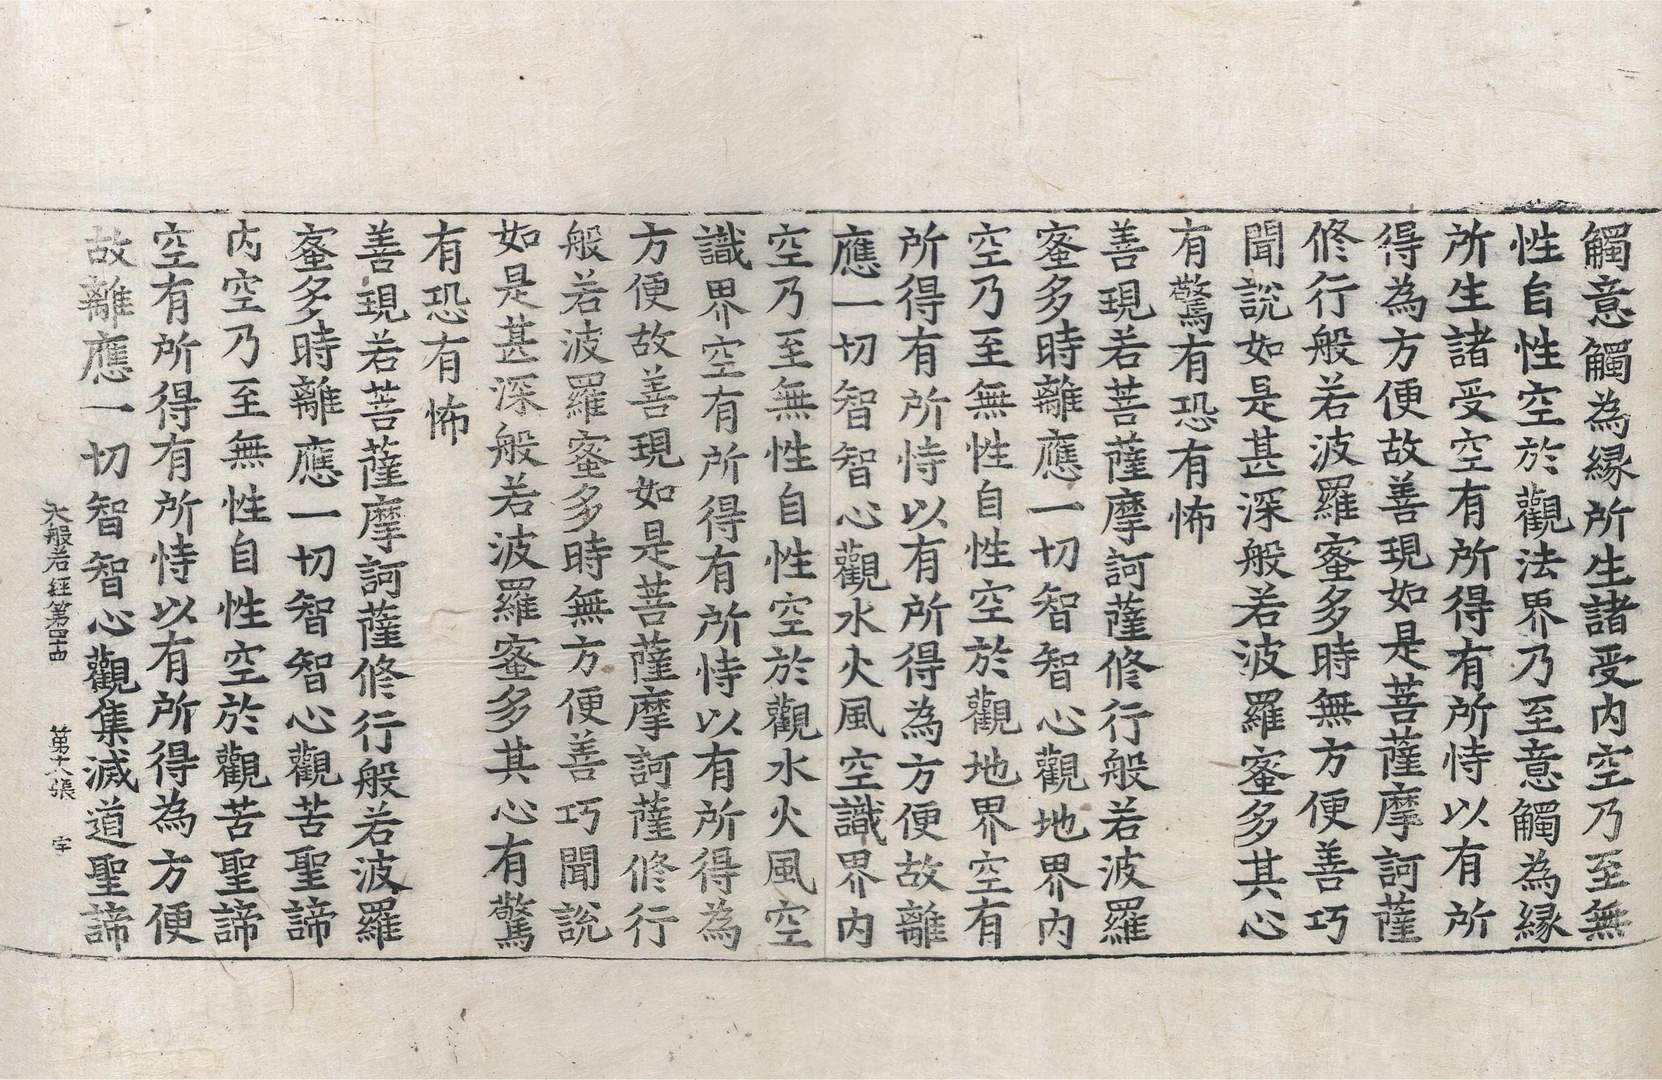 觸意觸為縁所生諸受内空乃至無
性自性空於觀法界乃至意觸為縁
所生諸受空有所得有所恃以有所
得為方便故善現如是菩薩摩訶薩
修行般若波羅蜜多時無方便善巧
聞說如是甚深般若波羅蜜多其心
有驚有恐有怖
善現若菩薩摩訶薩修行般若波羅
蜜多時離應一切智智心觀地界内
空乃至無性自性空於觀地界空有
所得有所恃以有所得為方便故離
應一切智智心觀水火風空識界内
空乃至無性自性空於觀水火風空
識界空有所得有所恃以有所得為
方便故善現如是菩薩摩訶薩修行
般若波羅蜜多時無方便善巧聞說
如是甚深般若波羅蜜多其心有驚
有恐有怖
善現若菩薩摩訶薩修行般若波羅
蜜多時離應一切智智心觀苦聖諦
内空乃至無性自性空於觀苦聖諦
空有所得有所恃以有所得為方便
故離應一切智智心觀集滅道聖諦
大般若經第四十四 第十八張 字